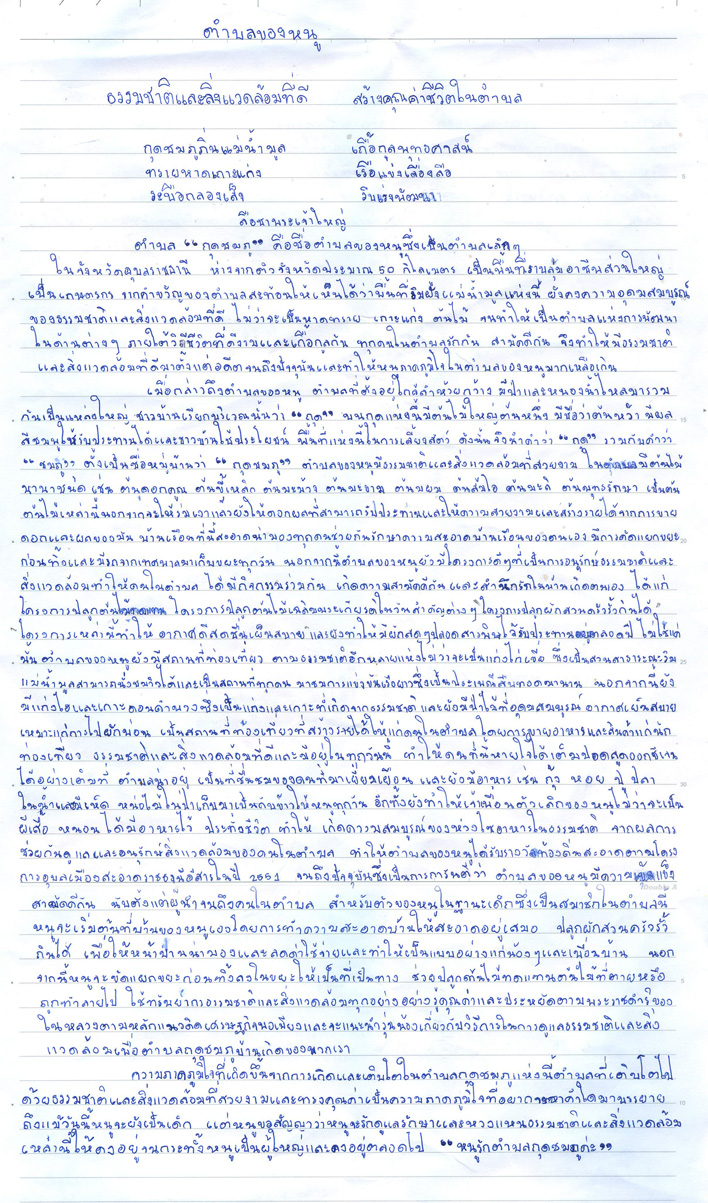 ตำบลของหนู
ธรรมชาติและสิ่งแวดล้อมที่ดี สร้างคุณค่าชีวิตในตำบล
กุดชมภูถิ่นแม่น้ำมูล เกื้อกูลพุทธศาสน์
ทรายหาดเกาะแก่ง เรือแข่งเลื่องลือ
ระบือกลองเส็ง รีบเร่งพัฒนา
ลือชาพระเจ้าใหญ่
ตำบล “ กุดชมภู ” คือชื่อตำบลของหนูซึ่งเป็นตำบลเล็กๆ
ในจังหวัดอุบลราชธานี ห่างจากตัวจังหวัดประมาณ 50 กิโลเมตร เป็นพื้นที่ราบลุ่มอาชีพส่วนใหญ่
เป็นเกษตรกร จากคำขวัญของตำบลสะท้อนให้เห็นได้ว่าผืนที่ริมฝั่งแม่น้ำมูลแห่งนี้ ยังคงความอุดมสมบูรณ์
ของธรรมชาติและสิ่งแวดล้อมที่ดี ไม่ว่าจะเป็นหาดทราย เกาะแก่ง ต้นไม้ จนทำให้เป็นตำบลแห่งการพัฒนา
ในด้านต่างๆ ภายใต้วิถีชีวิตที่ดีงามและเกื้อกูลกัน ทุกคนในตำบลรักกัน สามัคคีกัน จึงทำให้มีธรรมชาติ
และสิ่งแวดล้อมที่ดีมาตั้งแต่อดีตจนถึงปัจจุบันและทำให้หนูภาคภูมิใจในตำบลของหนูมากเหลือเกิน
เมื่อกล่าวถึงตำบลของหนู ตำบลที่ตั้งอยู่ใกล้ลำห้วยกว้าง มีป่าและหนองน้ำไหลมารวม
กันเป็นแหล่งใหญ่ ชาวบ้านเรียกบริเวณนั้นว่า “ กุด ” บนกุดแห่งนี้มีต้นไม้ใหญ่ต้นหนึ่ง มีชื่อว่าต้นหว้า มีผล
สีชมพูใช้รับประทานได้และชาวบ้านใช้ประโยชน์ พื้นที่แห่งนี้ในการเลี้ยงสัตว์ ดังนั้น จึงนำคำว่า “ กุด ” รวมกับคำว่า
“ ชมภู ” ตั้งเป็นชื่อหมู่บ้านว่า “ กุดชมภู ” ตำบลของหนูมีธรรมชาติและสิ่งแวดล้อมที่สวยงาม ในตำบลมีต้นไม้
นานาชนิด เช่น ต้นดอกคูณ ต้นขี้เหล็ก ต้นมะม่วง ต้นมะขาม ต้นมะยม ต้นลำไย ต้นมะลิ ต้นพุทธรักษา เป็นต้น
ต้นไม้เหล่านี้นอกจากจะให้ร่มเงาแล้วยังให้ดอกผลที่สามารถรับประทานและให้ความสวยงามและสร้างรายได้จากการขาย
ดอกและผลของมัน บ้านเรือนที่นี้สะอาดน่ามองทุกคนช่วยกันรักษาความสะอาดบ้านเรือนของตนเอง มีการคัดแยกขยะ
ก่อนทิ้งและมีรถจากเทศบาลมาเก็บขยะทุกวัน นอกจากนี้ตำบลของหนูยังมีโครงการดีๆที่เป็นการอนุรักษ์ธรรมชาติและ
สิ่งแวดล้อมทำให้คนในตำบล ได้มีกิจกรรมร่วมกัน เกิดความสามัคคีกัน และสำนึกรักในบ้านเกิดตนเอง ได้แก่
โครงการปลูกต้นไม้ทดแทน โครงการปลูกต้นไม้เฉลิมพระเกียรติในวันสำคัญต่างๆ โครงการปลูกผักสวนครัวรั้วกินได้
โครงการเหล่านี้ทำให้ อากาศดีสดชื่นเย็นสบาย และยังทำให้มีผักสดๆปลอดสารพิษไว้รับประทานอยู่ตลอดปี ไม่ใช่แค่
นั้น ตำบลของหนูยังมีสถานที่ท่องเที่ยว ตามธรรมชาติอีกหลายแห่งไม่ว่าจะเป็นแก่งไก่เขี่ย ซึ่งเป็นสวนสาธารณะริม
แม่น้ำมูลสามารถนั่งชมวิวได้และเป็นสถานที่ทุกคน มาชมการแข่งขันเรือยาวซึ่งเป็นประเพณีสืบทอดมานาน นอกจากนี้ยัง
มีแก่งไฮและเกาะดอนตำแยซึ่งเป็นแก่งและเกาะที่เกิดจากธรรมชาติ และยังมีป่าไม้ที่อุดมสมบูรณ์ อากาศเย็นสบาย
เหมาะแก่การไปพักผ่อน เป็นสถานที่ท่องเที่ยวที่สร้างรายได้ให้แก่คนในตำบลโดยการขายอาหารและสินค้าแก่นัก
ท่องเที่ยว ธรรมชาติและสิ่งแวดล้อมที่ดีและมีอยู่ในทุกวันนี้ ทำให้คนที่นี้หายใจได้เต็มปอดสูดออกซิเจน
ได้อย่างเต็มที่ ตำบลน่าอยู่ เป็นที่ชื่นชมของคนที่มาเยี่ยมเยือน และยังมีอาหาร เช่น กุ้ง หอย ปู ปลา
ในน้ำและมีเห็ด หน่อไม้ในป่าเก็บมาเป็นกับข้าวให้หนูทุกวัน อีกทั้งยังทำให้เจ้าเพื่อนตัวเล็กของหนูไม่ว่าจะเป็น
ผีเสื้อ หนอน ได้มีอาหารไว้ ประทังชีวิต ทำให้ เกิดความสมบูรณ์ของห่วงโซ่อาหารในธรรมชาติ จากผลการ
ช่วยกันดูแลและอนุรักษ์สิ่งแวดล้อมของคนในตำบล ทำให้ตำบลของหนูได้รับรางวัลท้องถิ่นสะอาดตามโครง
การอุบลเมืองสะอาดราชธานีอีสานในปี 2551 จนถึงปัจจุบันซึ่งเป็นการการันตีว่า ตำบลของหนูมีความเข้มแข็ง
สามัคคีกัน นับตั้งแต่ผู้นำจนถึงคนในตำบล สำหรับตัวของหนูในฐานะเด็กซึ่งเป็นสมาชิกในตำบลนี้
หนูจะเริ่มต้นที่บ้านของหนูเองโดยการทำความสะอาดบ้านให้สะอาดอยู่เสมอ ปลูกผักสวนครัวรั้ว
กินได้ เพื่อให้หน้าบ้านน่ามองและลดค่าใช้จ่ายและทำให้เป็นแบบอย่างแก่น้องๆและเพื่อนบ้าน นอก
จากนี้หนูจะคัดแยกขยะก่อนทิ้งลงในขยะให้เป็นที่เป็นทาง ช่วยปลูกต้นไม้ทดแทนต้นไม้ที่ตายหรือ
ถูกทำลายไป ใช้ทรัพย์ากรธรรมชาติและสิ่งแวดล้อมทุกอย่างอย่างรู้คุณค่าและประหยัดตามพระราชดำริของ
ในหลวงตามหลักแนวคิดเศรษฐกิจพอเพียงและจะแนะนำรุ่นน้องเกี่ยวกับวิธีการในการดูแลธรรมชาติและสิ่ง
แวดล้อมเพื่อตำบลกุดชมภูบ้านเกิดของพวกเรา
ความภาคภูมิใจที่เกิดขึ้นจากการเกิดและเติบโตในตำบลกุดชมภูแห่งนี้ตำบลที่เติบโตไป
ด้วยธรรมชาติและสิ่งแวดล้อมที่สวยงามและทรงคุณค่าเป็นความภาคภูมิใจที่อยากจะหาคำใดมาบรรยาย
ถึงแม้วันนี้หนูจะยังเป็นเด็ก แต่หนูขอสัญญาว่าหนูจะรักดูแลรักษาและหวงแหนธรรมชาติและสิ่งแวดล้อม
เหล่านี้ให้คงอยู่จนกระทั่งหนูเป็นผู้ใหญ่และคงอยู่ตลอดไป “ หนูรักตำบลกุดชมภูค่ะ ”